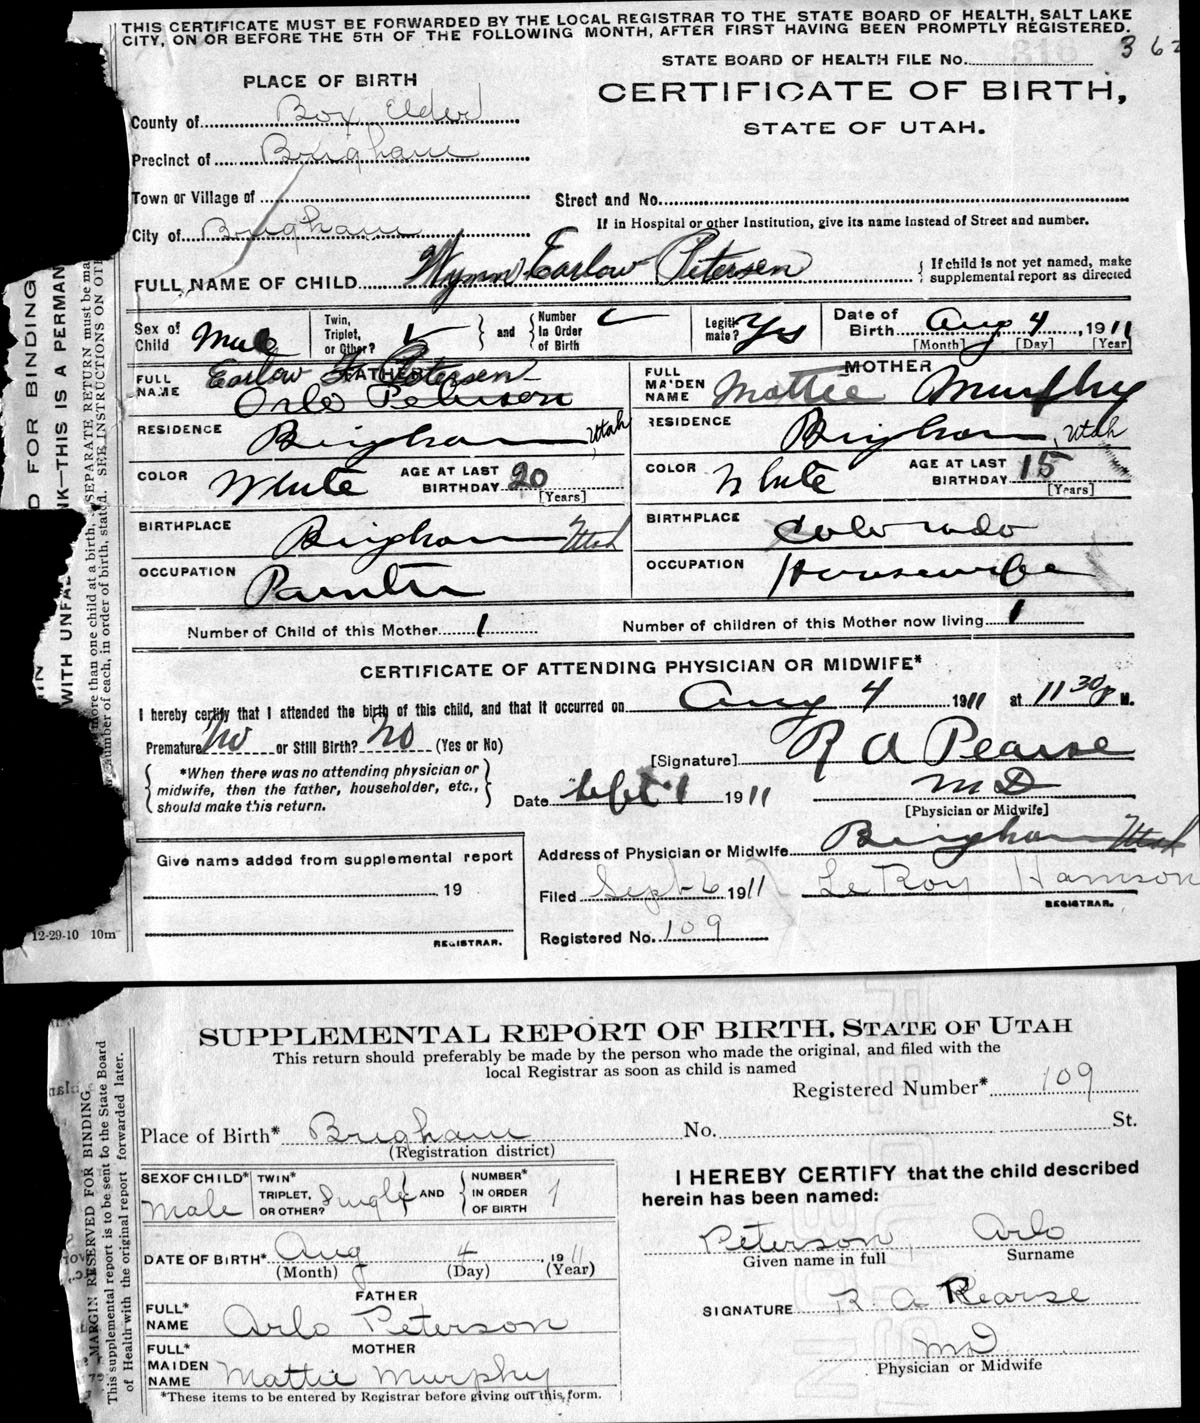 THIS CERTIFICATE MUST BE FORWARDED BY THE LOCAL REGISTRAR TO THE STATE BOARD OF HEALTH, SALT LAKE
CITY, ON OR BEFORE THE 5TH OF THE FOLLOWING MONTH, AFTER FIRST HAVING BEEN PROMPTLY REGISTERED.
STATE BOARD OF HEALTH FILE No. 316 362
PLACE OF BIRTH
CERTIFICATE OF BIRTH,
STATE OF UTAH.
County of Box Elder
Precinct of Brigham
Town or Village of
Street and No.
If in Hospital or other Institution, give its name instead of Street and number.
City of Brigham
FULL NAME OF CHILD Wynn Earlow Petersen
{ If child is not yet named, make
supplemental report as directed
Sex of Child Male
Twin, Triplet, or Other?
and
Number in Order of Birth
Legitimate? Yes
Date of Birth Aug 4, 1911
[Month] [Day] [Year]
FATHER
FULL NAME Earlow Petersen
Orlo Peterson
RESIDENCE Brigham, Utah
COLOR White AGE AT LAST BIRTHDAY 20
[Years]
BIRTHPLACE Brigham Utah
OCCUPATION Painter
MOTHER
FULL MAIDEN NAME Mattie Murphy
RESIDENCE Brigham, Utah
COLOR White AGE AT LAST BIRTHDAY 15
[Years]
BIRTHPLACE Colorado
OCCUPATION Housewife
Number of Child of this Mother 1 Number of children of this Mother now living 1
CERTIFICATE OF ATTENDING PHYSICIAN OR MIDWIFE*
I hereby certify that I attended the birth of this child, and that it occurred on Aug 4 1911 at 11 30 P M.
Premature No or Still Birth? No (Yes or No)
[Signature] R A Pearse
{ *When there was no attending physician or
midwife, then the father, householder, etc.,
should make this return. }
Date Sept 1 1911
M D
[Physician or Midwife]
Address of Physician or Midwife Brigham Utah
Give name added from supplemental report
19
REGISTRAR.
Filed Sept 6 1911 LeRoy Hamson
REGISTRAR.
Registered No. 109
12-29-10 10m
SUPPLEMENTAL REPORT OF BIRTH, STATE OF UTAH
This return should preferably be made by the person who made the original, and filed with the
local Registrar as soon as child is named
Registered Number* 109
Place of Birth* Brigham No. St.
(Registration district)
SEX OF CHILD* Male
TWIN* TRIPLET, OR OTHER? Single
AND
NUMBER* IN ORDER OF BIRTH 1
DATE OF BIRTH* Aug 4, 1911
(Month) (Day) (Year)
FATHER
FULL* NAME Arlo Peterson
MOTHER
FULL* MAIDEN NAME Mattie Murphy
*These items to be entered by Registrar before giving out this form.
I HEREBY CERTIFY that the child described
herein has been named:
Peterson, Arlo
Given name in full Surname
SIGNATURE R. A Pearse
MD
Physician or Midwife
MARGIN RESERVED FOR BINDING.
This supplemental report is to be sent to the State Board
of Health with the original report forwarded later.